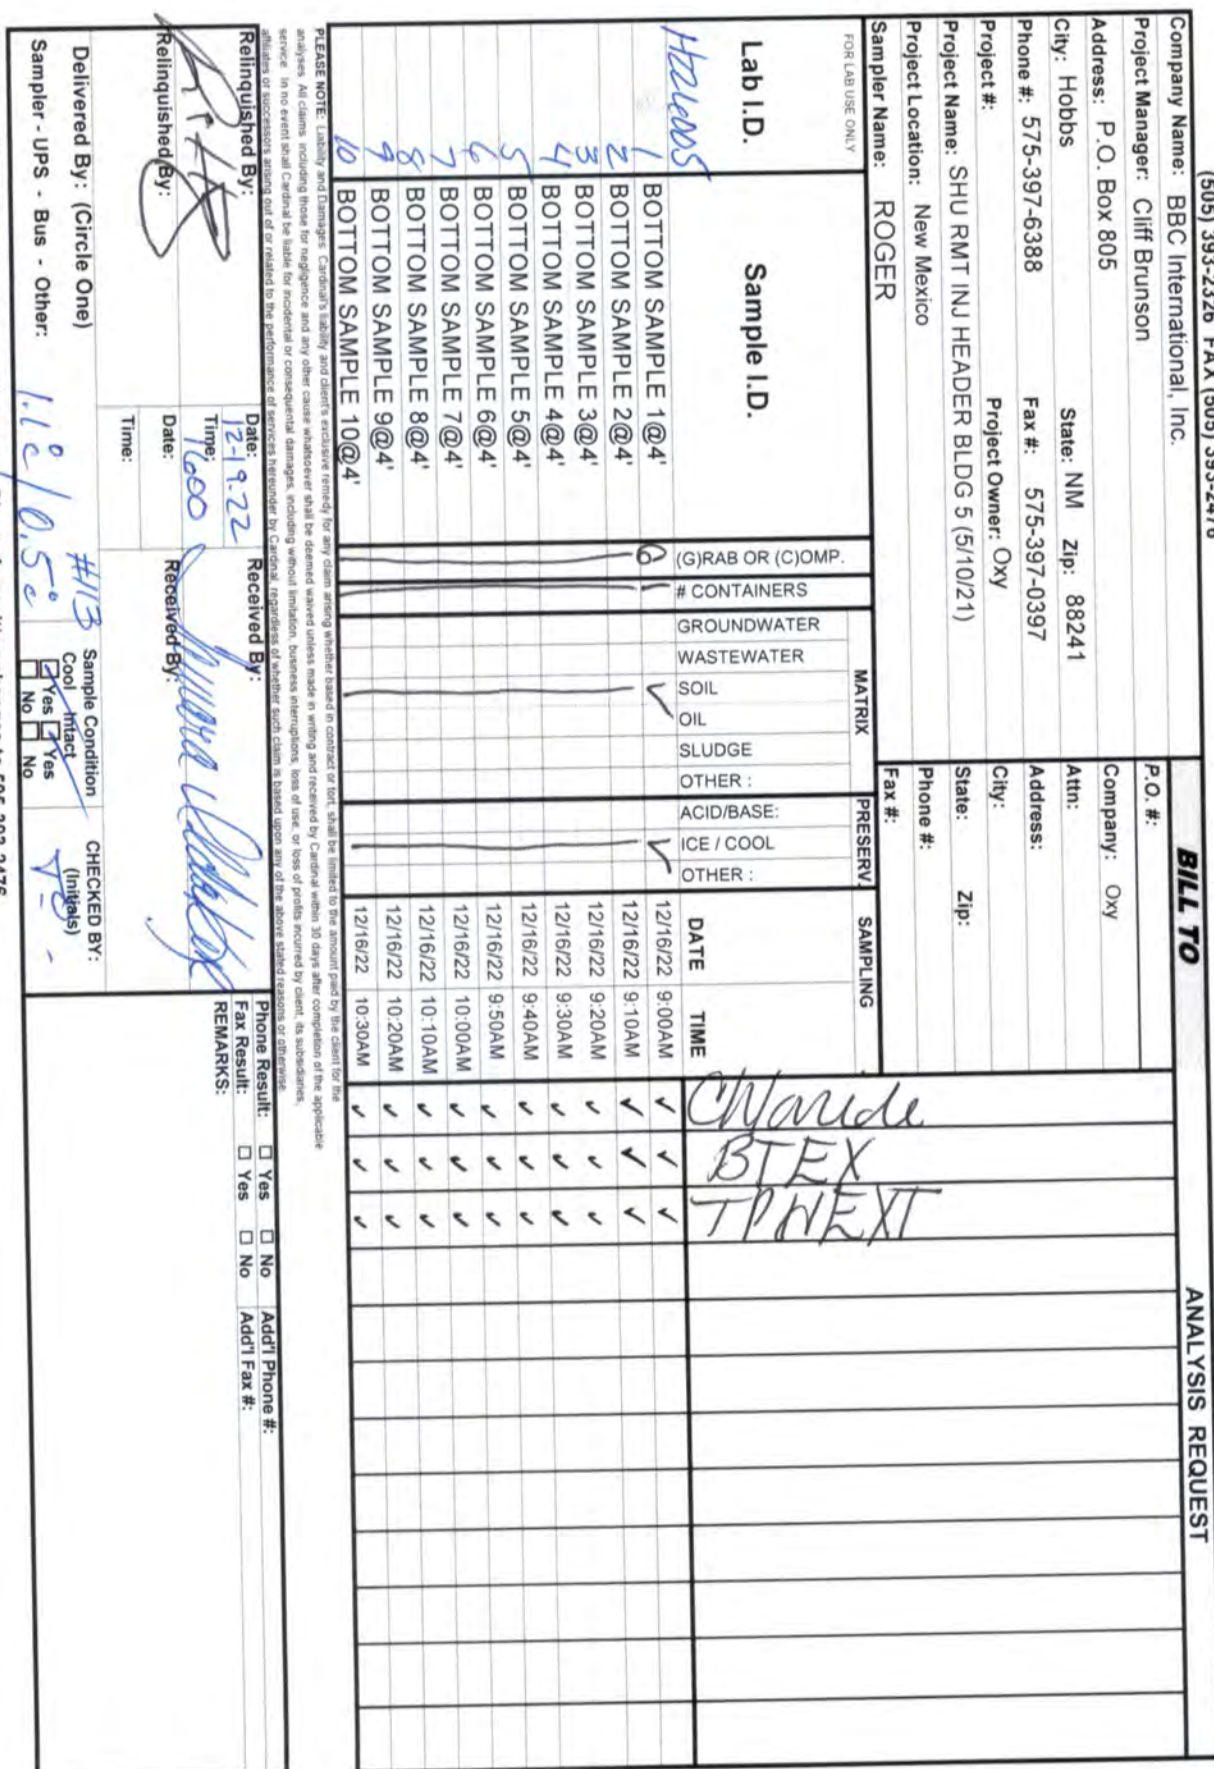 (505) 393-2326 FAX (505) 393-2476
Company Name: BBC International, Inc.
BILL TO
ANALYSIS REQUEST
Project Manager: Cliff Brunson
P.O. #:
Address: P.O. Box 805
Company: Oxy
City: Hobbs State: NM Zip: 88241
Attn:
Phone #: 575-397-6388 Fax #: 575-397-0397
Address:
Project #: Project Owner: Oxy
City:
Project Name: SHU RMT INJ HEADER BLDG 5 (5/10/21)
State: Zip:
Project Location: New Mexico
Phone #:
Sampler Name: ROGER
Fax #:
FOR LAB USE ONLY
MATRIX PRESERV. SAMPLING
Lab I.D. Sample I.D. (G)RAB OR (C)OMP. # CONTAINERS GROUNDWATER WASTEWATER SOIL OIL SLUDGE OTHER : ACID/BASE: ICE / COOL OTHER : DATE TIME Chloride BTEX TPH EXT
H226005
1 BOTTOM SAMPLE 1@4' G 1 ✓ ✓ 12/16/22 9:00AM ✓ ✓ ✓
2 BOTTOM SAMPLE 2@4' 12/16/22 9:10AM ✓ ✓ ✓
3 BOTTOM SAMPLE 3@4' 12/16/22 9:20AM ✓ ✓ ✓
4 BOTTOM SAMPLE 4@4' 12/16/22 9:30AM ✓ ✓ ✓
5 BOTTOM SAMPLE 5@4' 12/16/22 9:40AM ✓ ✓ ✓
6 BOTTOM SAMPLE 6@4' 12/16/22 9:50AM ✓ ✓ ✓
7 BOTTOM SAMPLE 7@4' 12/16/22 10:00AM ✓ ✓ ✓
8 BOTTOM SAMPLE 8@4' 12/16/22 10:10AM ✓ ✓ ✓
9 BOTTOM SAMPLE 9@4' 12/16/22 10:20AM ✓ ✓ ✓
10 BOTTOM SAMPLE 10@4' 12/16/22 10:30AM ✓ ✓ ✓
PLEASE NOTE: Liability and Damages. Cardinal's liability and client's exclusive remedy for any claim arising whether based in contract or tort, shall be limited to the amount paid by the client for the
analyses. All claims including those for negligence and any other cause whatsoever shall be deemed waived unless made in writing and received by Cardinal within 30 days after completion of the applicable
service. In no event shall Cardinal be liable for incidental or consequental damages, including without limitation, business interruptions, loss of use, or loss of profits incurred by client, its subsidiaries,
affiliates or successors arising out of or related to the performance of services hereunder by Cardinal, regardless of whether such claim is based upon any of the above stated reasons or otherwise.
Relinquished By: Date: 12-19-22 Received By:
Time: 1600
Phone Result: ☐ Yes ☐ No Add'l Phone #:
Fax Result: ☐ Yes ☐ No Add'l Fax #:
REMARKS:
Relinquished By: Date: Received By:
Time:
Delivered By: (Circle One) #113 Sample Condition CHECKED BY:
Cool Intact (Initials)
Sampler - UPS - Bus - Other: 1.1°c / 0.5°c ☐ Yes ☐ Yes
☐ No ☐ No